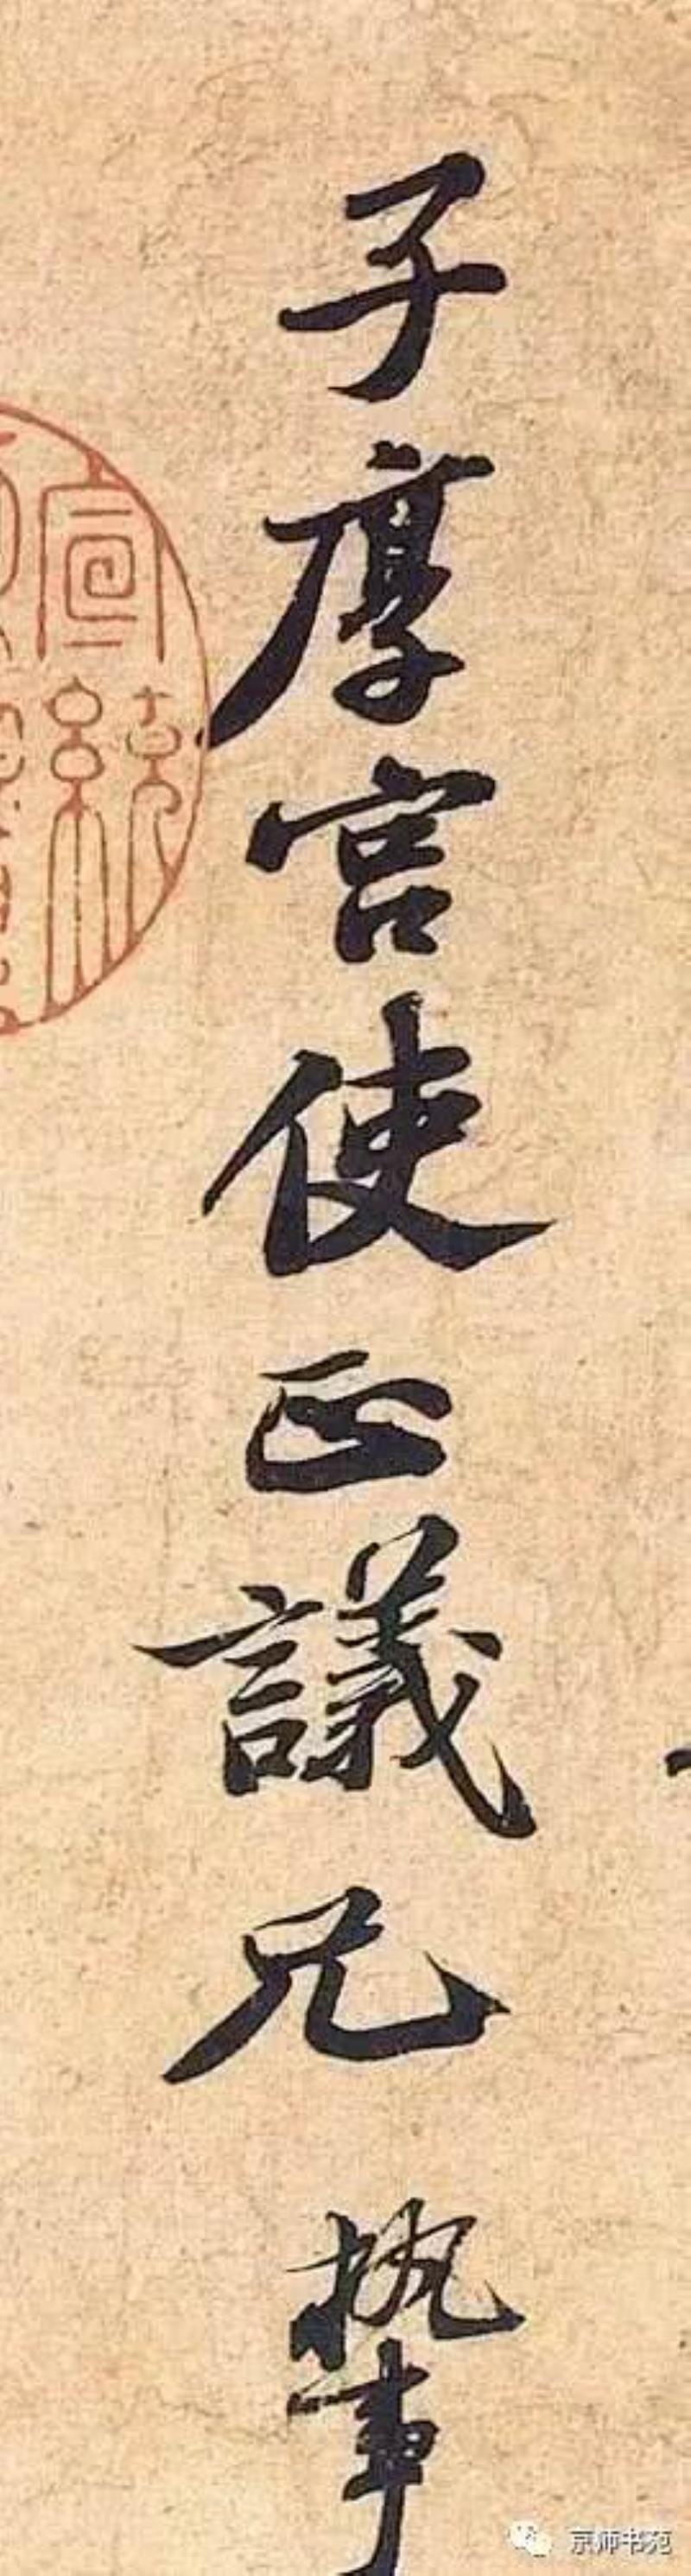 子厚宫使正議兄執事
宣統
京师书苑